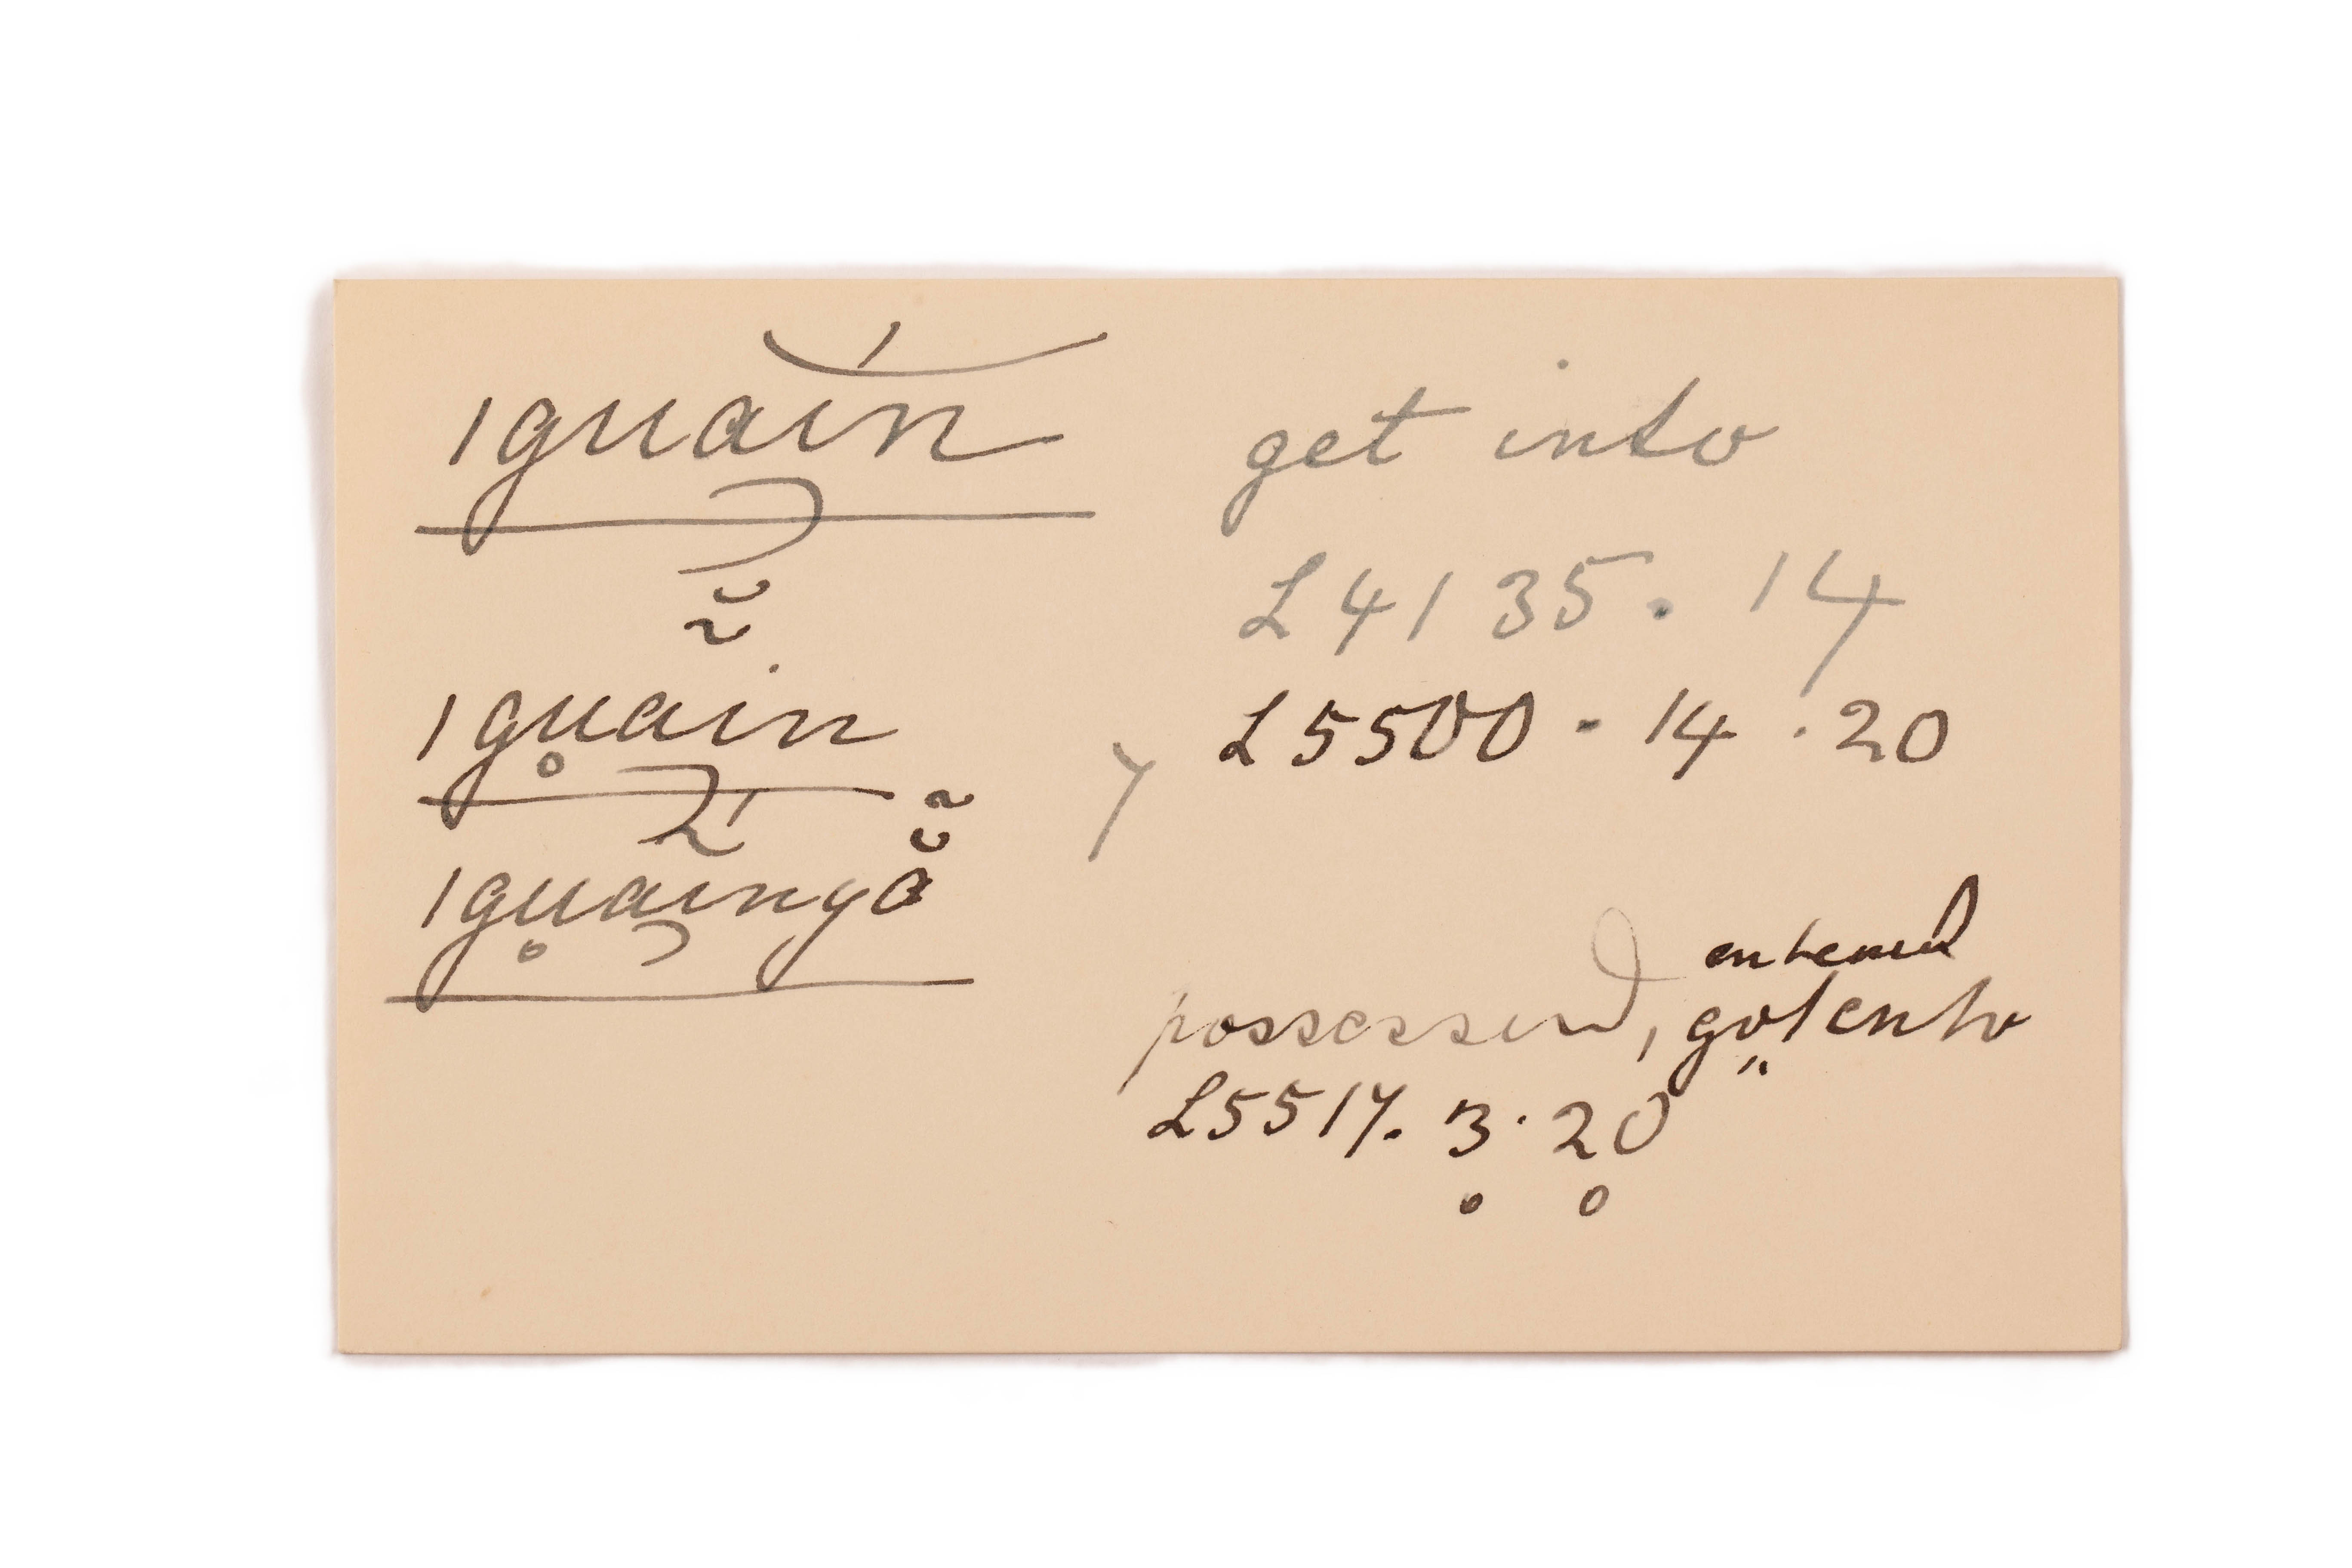 ıguaín get into
L 4135. 14
ıgu̥ãin L 5500 . 14 . 20
ıgu̥aíngã
entered
possessed, got ento
L 5517. 3. 20